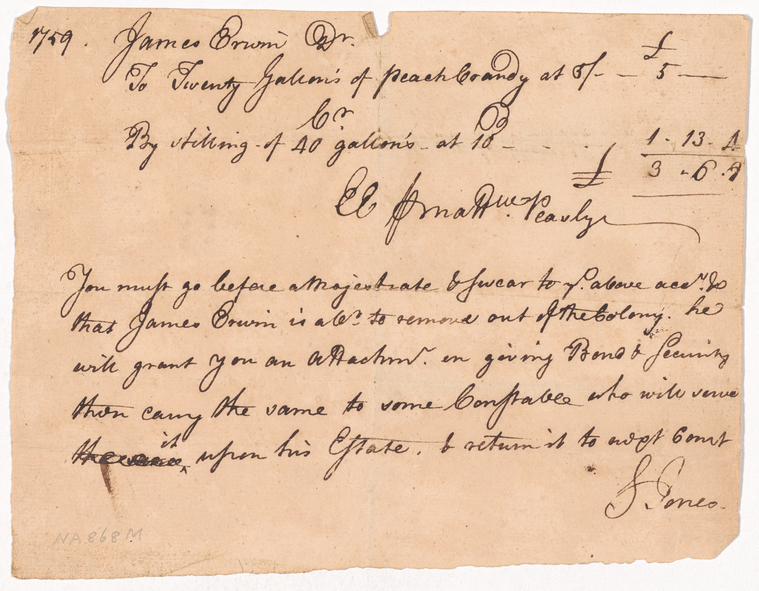 1759. James Erwin Dr. £
To Twenty Gallons of peach brandy at 5/- — 5 —
Cr
By stilling of 40 gallons at 10D - - - 1 - 13 - 4
£ 3 - 6 - 8
EE
You must go before a Majestrate & swear to ye. above acct. &
that James Erwin is abt. to remove out of the Colony. he
will grant you an Attachmt. on giving Bond & Security
then carry the same to some Constable who will serve
it upon his Estate. & return it to next Court
S Jones.
NA 868 M